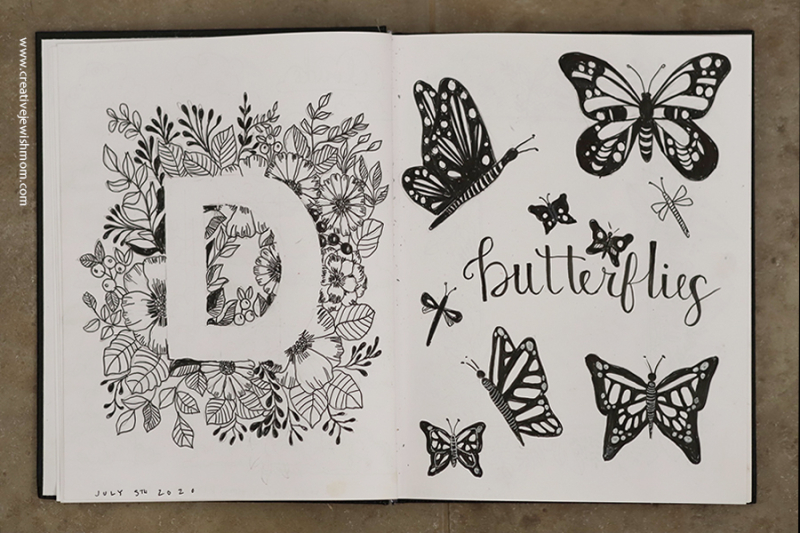 www.creativejewishmom.com
D
butterflies
JULY 5TH 2021